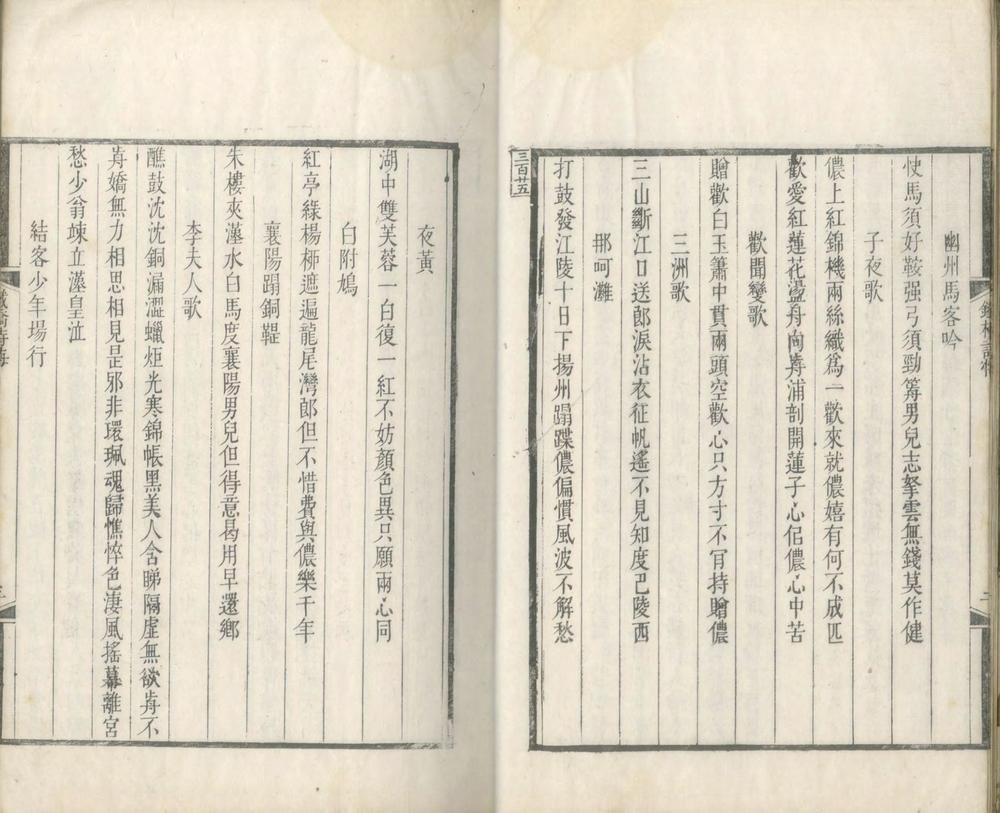 幽州馬客吟
使馬須好鞍强弓須勁篝男兒志拏雲無錢莫作健
子夜歌
儂上紅錦機兩絲織爲一歡來就儂嬉有何不成匹
歡愛紅蓮花盪舟向歬浦剖開蓮子心佀儂心中苦
歡聞變歌
贈歡白玉簫中貫兩頭空歡心只方寸不肎持贈儂
三洲歌
三山斷江口送郎淚沾衣征帆遙不見知度巴陵西
那呵灘
打鼓發江陵十日下揚州蹋蹀儂偏慣風波不解愁
三百廿五
夜黃
湖中雙芙蓉一白復一紅不妨顏色異只願兩心同
白附鳩
紅亭綠楊桺遮遍龍尾灣郎但不惜費與儂樂千年
襄陽蹋銅鞮
朱樓夾漢水白馬度襄陽男兒但得意曷用早還鄉
李夫人歌
醮鼓沈沈銅漏澀蠟炬光寒錦帳黑美人含睇隔虛無欲歬不
歬嬌無力相思相見昰邪非環珮魂歸憔悴色淒風搖幕離宮
愁少翁竦立漢皇泣
結客少年場行